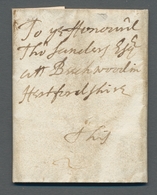 To ye Honour'd
Tho Sanders Esqr
att Beechwood in
Hertfordshire
This